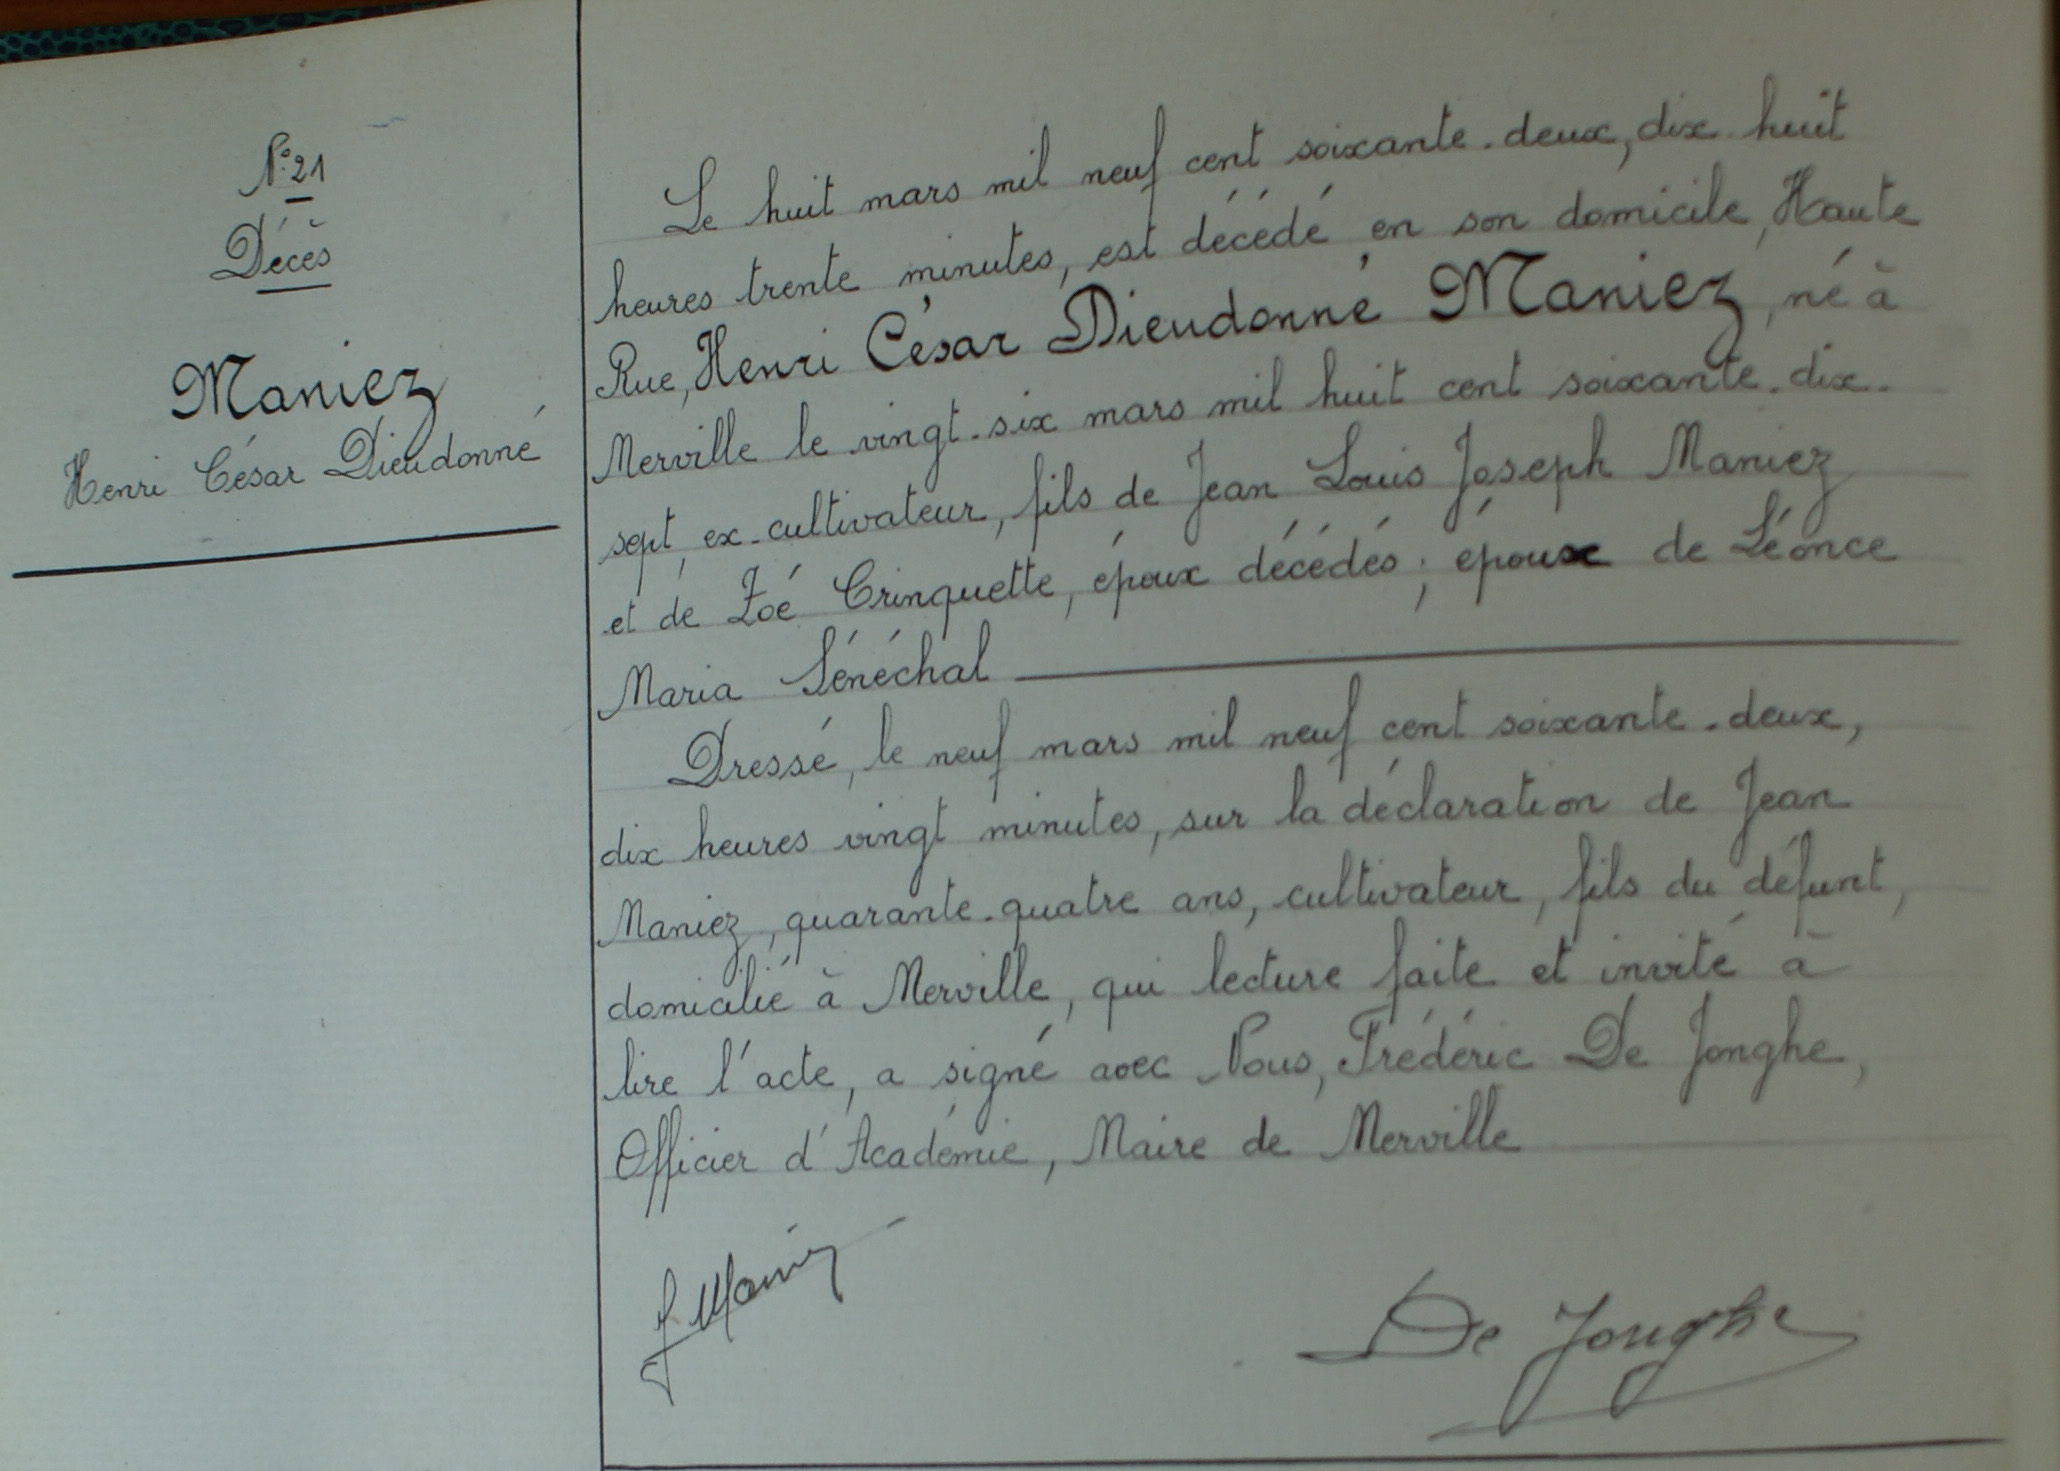 N° 21
Décès
Maniez
Henri César Dieudonné
Le huit mars mil neuf cent soixante-deux, dix huit
heures trente minutes, est décédé en son domicile, Haute
Rue, Henri César Dieudonné Maniez, né à
Merville le vingt-six mars mil huit cent soixante-dix-
sept, ex-cultivateur, fils de Jean Louis Joseph Maniez
et de Zoé Crinquette, époux décédés; époux de Léonce
Maria Sénéchal
Dressé, le neuf mars mil neuf cent soixante-deux,
dix heures vingt minutes, sur la déclaration de Jean
Maniez, quarante-quatre ans, cultivateur, fils du défunt,
domicilié à Merville, qui lecture faite et invité à
lire l'acte, a signé avec Nous, Frédéric De Jonghe,
Officier d'Académie, Maire de Merville
J Maniez
De Jonghe